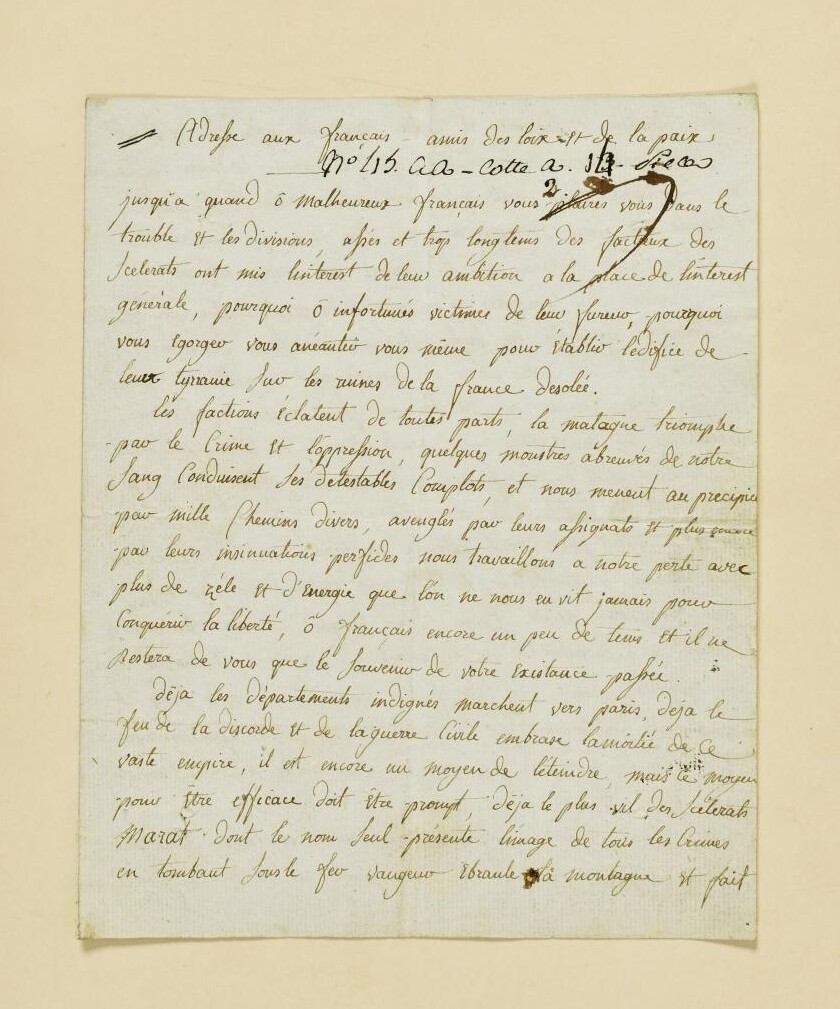 Adresse aux français amis des loix et de la paix
No 415. aa - Cotte a. Piece
2
jusqu'a quand ô malheureux français vous plaires vous dans le
trouble et les divisions, assés et trop longtems des factieux des
Scelerats ont mis linterest de leur ambition a la place de linterest
général, pourquoi ô infortunés victimes de leur fureur, pourquoi
vous Egorger vous anéantir vous même pour établir lédifice de
leur tyrannie sur les ruines de la france desolée.
les factions éclatent de toutes parts, la montagne triomphe
par le Crime et l'oppression, quelques monstres abreuvés de notre
Sang Conduisent Ses détestables Complots, et nous menent au précipice
par mille Chemins divers, avenglés par leurs assignats et plus encore
par leurs insinuations perfides nous travaillons a notre perte avec
plus de zéle et d'Energie que lón ne nous en vit jamais pour
Conquérir la liberté, ô français encore un peu de tems et il ne
Restera de vous que le Souvenir de votre Existance passée.
déja les départements indignés marchent vers paris, deja le
feu de la discorde et de laguerre Civile embrase lamoitié de ce
vaste empire, il est encore un moyen de léteindre, mais ce moyen
pour Être efficace doit être prompt, déja le plus vil des Scélerats
Marat dont le nom Seul présente limage de tous les Crimes
en tombant Sous le fer vangeur Ebranle la montagne et fait